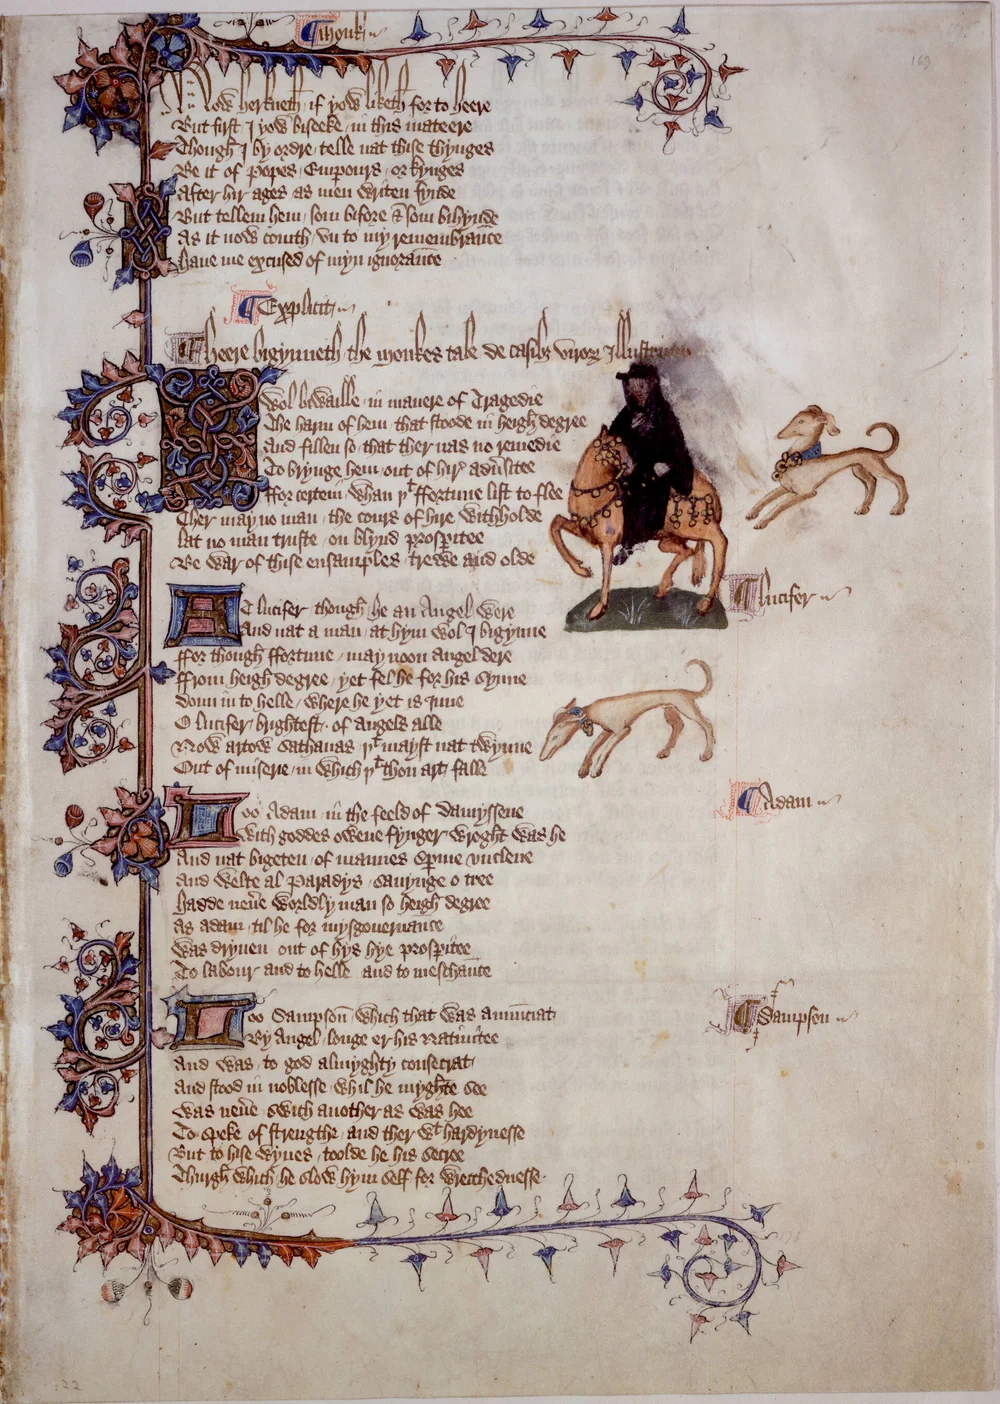 Monk
169
Now herkneth, if yow liketh for to heere
But first I yow biseeke, in this mateere
Though I by ordre, telle nat thise thynges
Be it of Popes, Emperours, or kynges
After hir ages as men writen fynde
But tellem hem, som bifore & som bihynde
As it now comth, vn to my remembrance
haue me excused of myn ignorance
Explicit
heere bigynneth, the monkes tale de casibꝫ viroꝝ Illustrium
I wol biwaille, in manere of Tragedie
The harm of hem, that stoode in heigh degree
And fillen so, that ther nas no remedie
To brynge hem, out of hir aduˀsitee
ffor certein, whan þᵗ ffortune list to flee
Ther may no man, the cours of hire withholde
lat no man truste, on blynd prosꝑitee
Be war of thise ensamples, trewe and olde
At lucifer, though he an Angel were
Lucifer
And nat a man, at hym wol I bigynne
ffor though ffortune, may noon Angel dere
ffrom heigh degree, yet fel he for his synne
doun in to helle, where he yet is Inne
O lucifer, brightest, of angels alle
Now artow Sathanas, þᵗ mayst nat twynne
Out of miserie, in which þᵗ thou art falle
Loo Adam, in the feeld of damyssene
Adam
with goddes owene fynger wroght was he
And nat bigeten, of mannes sꝑme vnclene
And welte al Paradys, sauynge o tree
hadde neuˀe worldly man so heigh degree
as adam, til he for mysgouernance
was dryuen out of hys hye prosꝑitee
To labour and to helle and to meschance
Loo Sampson, which that was annunciat
Sampson
By Angel, longe er his Natiuitee
And was, to god almyghty consecrat
And stood in noblesse whil he myghte see
was neuˀe swich another as was hee
To speke of strengthe, and ther wᵗ hardynesse
But to hise wyues, toolde he his secree
Thurgh which he slow hym self for wrecchednesse